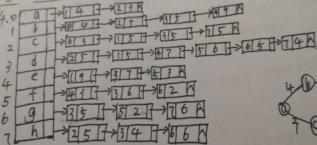 0 a → 1 4 → 2 3 ∧
1 b → 0 4 → 2 5 → 3 5 → 4 9 ∧
2 c → 0 3 → 1 5 → 3 5 → 7 5 ∧
3 d → 2 5 → 1 5 → 4 7 → 5 6 → 6 5 → 7 4 ∧
4 e → 1 9 → 3 7 → 5 3 ∧
5 f → 4 3 → 3 6 → 6 2 ∧
6 g → 3 5 → 5 2 → 7 6 ∧
7 h → 2 5 → 3 4 → 6 6 ∧
4 b
a